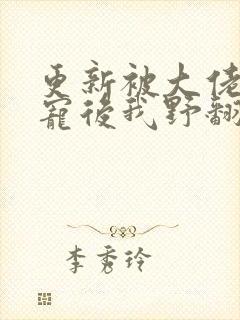 更新被大佬
寵後我野翻
李秀玲